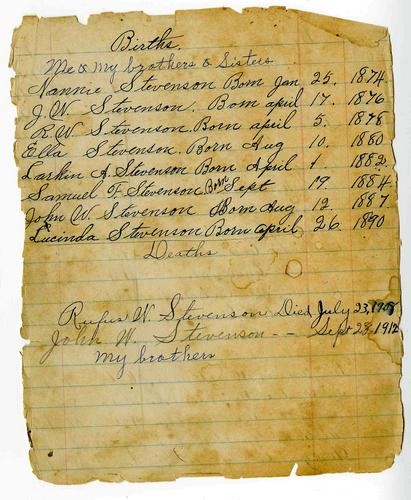 Births.
Me & my brothers & Sisters
Nannie Stevenson Born Jan 25. 1874
J. W. Stevenson. Born april 17. 1876
R. W. Stevenson. Born april 5. 1878
Ella Stevenson. Born Aug 10. 1880
Larkin A Stevenson Born April 1 1882
Samuel F Stevenson Born Sept 19. 1884
John W. Stevenson Born Aug 12. 1887
Lucinda Stevenson Born april 26. 1890
Deaths
Rufus W. Stevenson Died July 23,
John W. Stevenson -- Sept 28, 1912
my brothers